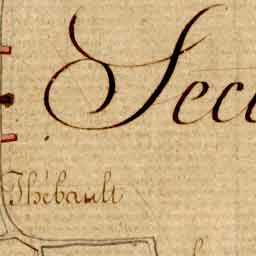 Sect
Thébault